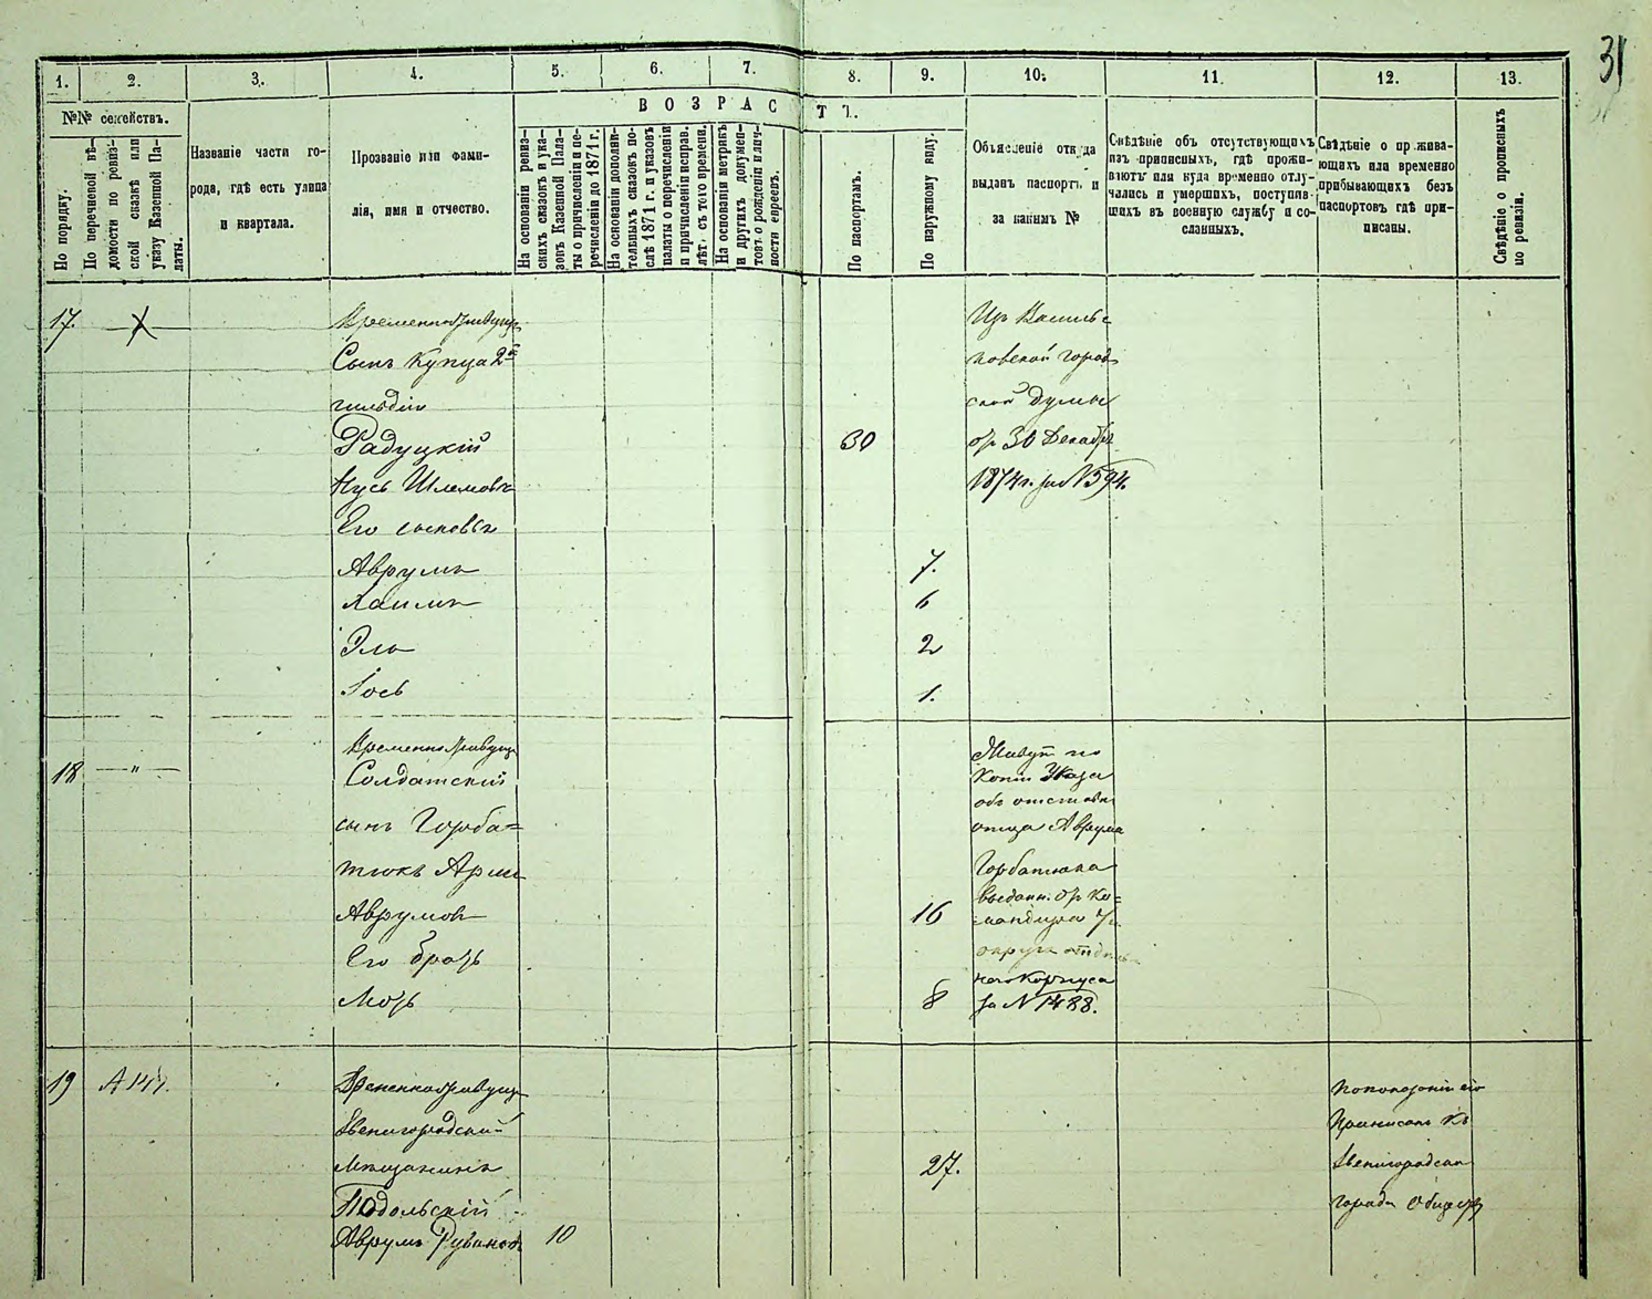 31
1. 2. 3. 4. 5. 6. 7. 8. 9. 10. 11. 12. 13.
№№ семействъ.
По порядку.
По перечневой вѣ-
домости по ревиз-
ской сказкѣ или
указу Казенной Па-
латы.
Названіе части го-
рода, гдѣ есть улица
и квартала.
Прозваніе или фами-
лія, имя и отчество.
ВОЗРАСТЪ.
На основаніи ревиз-
скихъ сказокъ и ука-
зовъ Казенной Пала-
ты о причисленіи и пе-
речисленіи до 1871 г.
На основаніи дополни-
тельныхъ сказокъ по-
слѣ 1871 г. и указовъ
палаты о перечисленіи
и причисленіи исправ.
лѣт. съ того времени.
На основаніи метрикъ
и другихъ докумен-
товъ о рожденіи и лич-
ности евреевъ.
По паспортамъ.
По наружному виду.
Объясненіе откуда
выданъ паспортъ и
за какимъ №
Свѣдѣніе объ отсутствующихъ
изъ приписныхъ, гдѣ прожи-
ваютъ или куда временно отлу-
чались и умершихъ, поступив-
шихъ въ военную службу и со-
сланныхъ.
Свѣдѣніе о прожива-
ющихъ или временно
прибывающихъ безъ
паспортовъ гдѣ при-
писаны.
Свѣдѣніе о прописныхъ
по ревизіи.
17.
Временноживущ
Сынъ Купца 2й
гильдіи
Радуцкій
Нусь Шлемовъ
30
Изъ Василь
ковской город
ской Думы
отъ 30 Декабря
1874 г. за №594.
Его сыновья
Аврумъ 7.
Хаимъ 6
Эло 2
Іось 1.
18 — " —
Временноживущ
Солдатскій
сынъ Горба=
тюкъ Арии
Аврумов 16
Его братъ
Мотъ 8
Живут по
копіи Указа
объ отставкѣ
отца Аврума
Горбатюка
выданн. отъ Ко=
мандира 7го
округа отдѣль
наго Корпуса
за №1488.
19
Временноживущ
Звенигородскій
Мѣщанинъ 27.
Подольскій
Аврумъ Рувинов 10
По показанію его
Приписанъ къ
Звенигородском
городу Общест